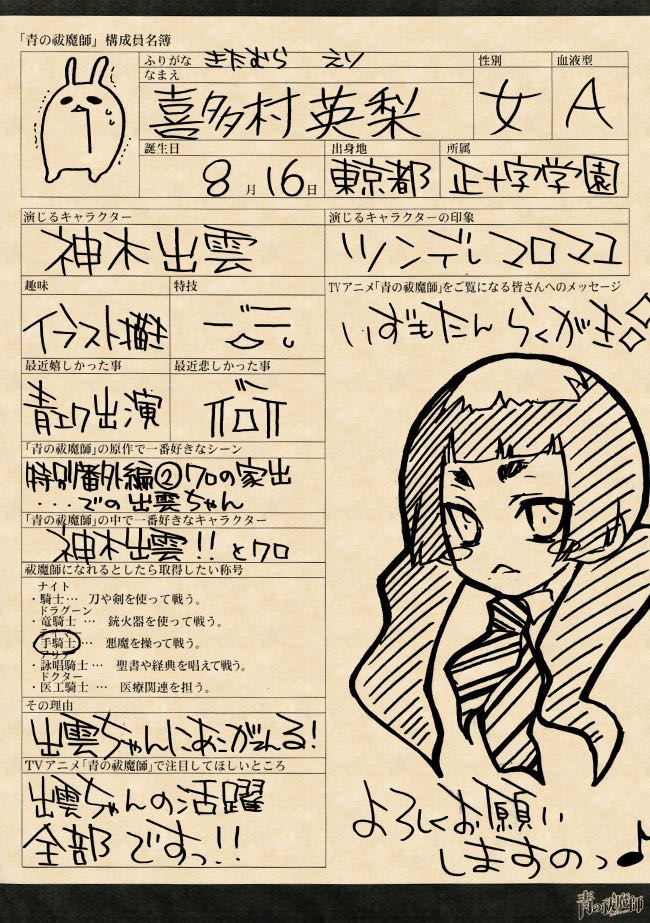 「青の祓魔師」構成員名簿
ふりがな きたむら えり
なまえ
喜多村英梨
性別
女
血液型
A
誕生日
8月16日
出身地
東京都
所属
正十字学園
演じるキャラクター
神木出雲
演じるキャラクターの印象
ツンデレマロマユ
趣味
イラスト描き
特技
最近嬉しかった事
青エク出演
最近悲しかった事
「青の祓魔師」の原作で一番好きなシーン
特別番外編②クロの家出
...での出雲ちゃん
「青の祓魔師」の中で一番好きなキャラクター
神木出雲!!とクロ
祓魔師になれるとしたら取得したい称号
ナイト
・騎士… 刀や剣を使って戦う。
ドラグーン
・竜騎士 … 銃火器を使って戦う。
手騎士… 悪魔を操って戦う。
アリア
・詠唱騎士… 聖書や経典を唱えて戦う。
ドクター
・医工騎士 … 医療関連を担う。
その理由
出雲ちゃんにあこがえる!
TVアニメ「青の祓魔師」で注目してほしいところ
出雲ちゃんの活躍
全部ですっ!!
TVアニメ「青の祓魔師」をご覧になる皆さんへのメッセージ
いずもたん らくがき◇◇
よろしくお願い
しますのっ♪
青の祓魔師